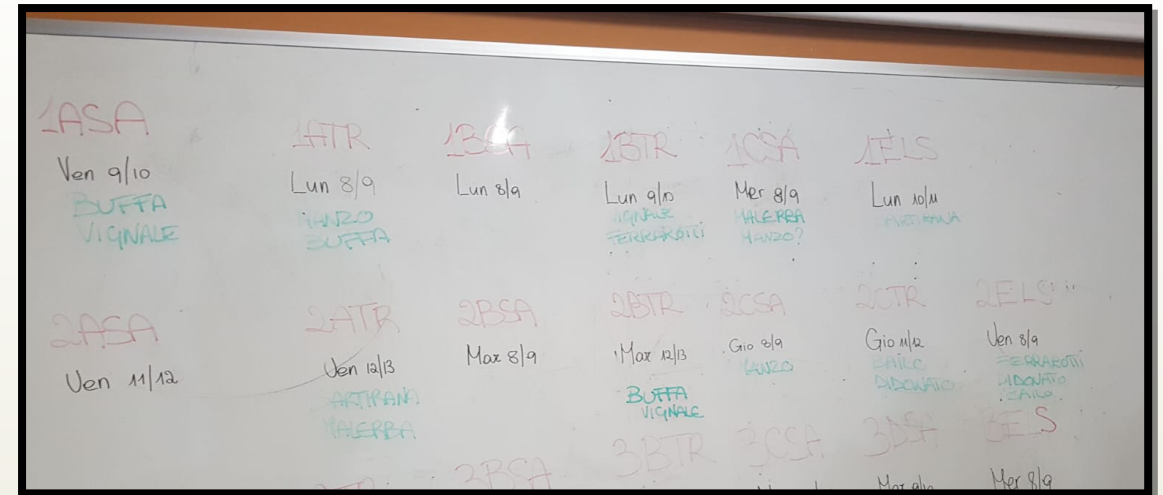 1ASA
Ven 9/10
BUFFA
VIGNALE
1ATR
Lun 8/9
MANZO
BUFFA
1BSA
Lun 8/9
1BTR
Lun 9/10
VIGNALE
FERRAROTTI
1CSA
Mer 8/9
MALERBA
MANZO?
1ELS
Lun 10/11
ARTIRANA
2ASA
Ven 11/12
2ATR
Ven 12/13
ARTIRANA
MALERBA
2BSA
Mar 8/9
2BTR
Mar 12/13
BUFFA
VIGNALE
2CSA
Gio 8/9
MANZO
2CTR
Gio 11/12
DIDONATO
2ELS
Ven 8/9
FERRAROTTI
DIDONATO
3BSA
3BTR
3CSA
3DSA
Mar 9/10
3ELS
Mer 8/9